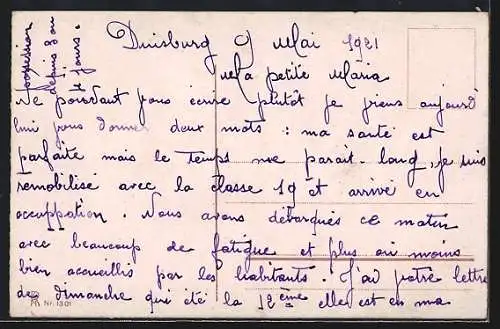 Duisburg 9 Mai 1921
Ma petite Maria
Ne pouvant vous écrire plutôt je viens aujourd
hui vous donner deux mots : ma santé est
parfaite mais le temps me parait long, je suis
remobilisé avec la classe 19 et arrivé en
occuppation. Nous avons débarqués ce matin
avec beaucoup de fatigue et plus ou moins
bien accueillis par les habitants. J'ai votre lettre
de dimanche qui été la 12ème elle est en ma
possession
depuis
jours.
Nr. 1301